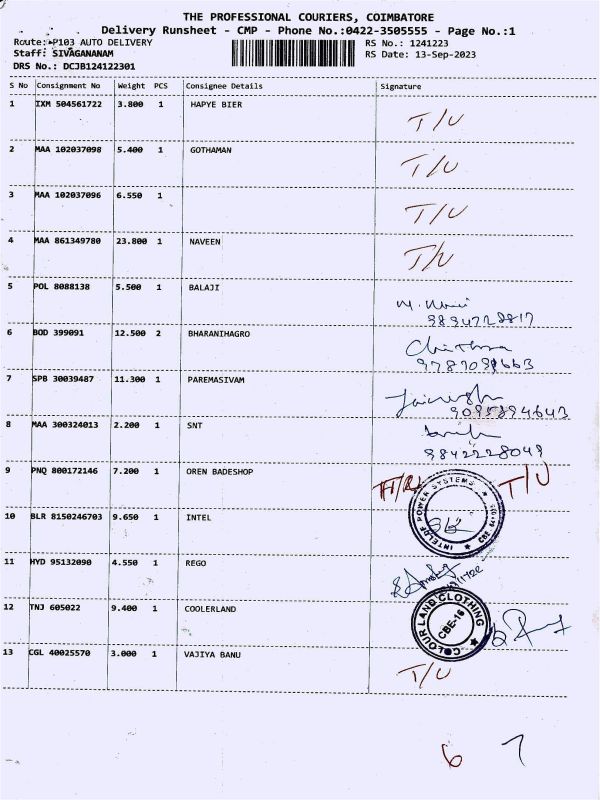 THE PROFESSIONAL COURIERS, COIMBATORE
Delivery Runsheet - CMP - Phone No.:0422-3505555 - Page No.:1
Route: P103 AUTO DELIVERY RS No.: 1241223
Staff: SIVAGANANAM RS Date: 13-Sep-2023
DRS No.: DCJB124122301
S No Consignment No Weight PCS Consignee Details Signature
1 IXM 504561722 3.800 1 HAPYE BIER T/U
2 MAA 102037098 5.400 1 GOTHAMAN T/U
3 MAA 102037096 6.550 1 T/U
4 MAA 861349780 23.800 1 NAVEEN T/U
5 POL 8088138 5.500 1 BALAJI
6 BOD 399091 12.500 2 BHARANIHAGRO
7 SPB 30039487 11.300 1 PAREMASIVAM
8 MAA 300324013 2.200 1 SNT
9842228049
9 PNQ 800172146 7.200 1 OREN BADESHOP T/U
10 BLR 8150246703 9.650 1 INTEL
POWER SYSTEMS
11 HYD 95132090 4.550 1 REGO
12 TNJ 605022 9.400 1 COOLERLAND
COLOUR LAND CLOTHING
CBE-16
13 CGL 40025570 3.000 1 VAJIYA BANU T/U
6 7